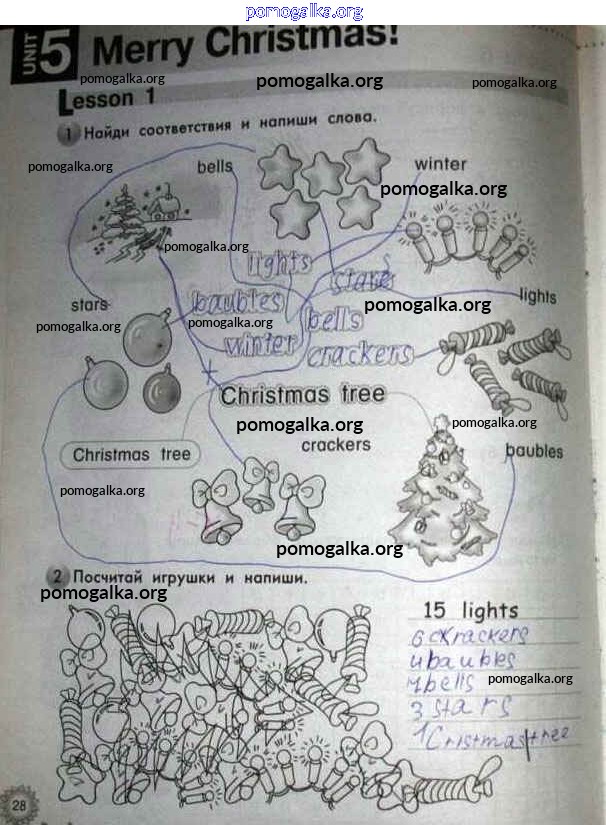 pomogalka.org
UNIT 5 Merry Christmas!
pomogalka.org
pomogalka.org
pomogalka.org
Lesson 1
1 Найди соответствия и напиши слова.
pomogalka.org
bells
winter
pomogalka.org
pomogalka.org
lights
stars
lights
stars
baubles
pomogalka.org
pomogalka.org
pomogalka.org
bells
winter
crackers
Christmas tree
pomogalka.org
pomogalka.org
Christmas tree
crackers
baubles
pomogalka.org
pomogalka.org
2 Посчитай игрушки и напиши.
pomogalka.org
15 lights
6 ckrackers
4 baubles
7 bells
pomogalka.org
3 stars
1 Cristmas tree
28